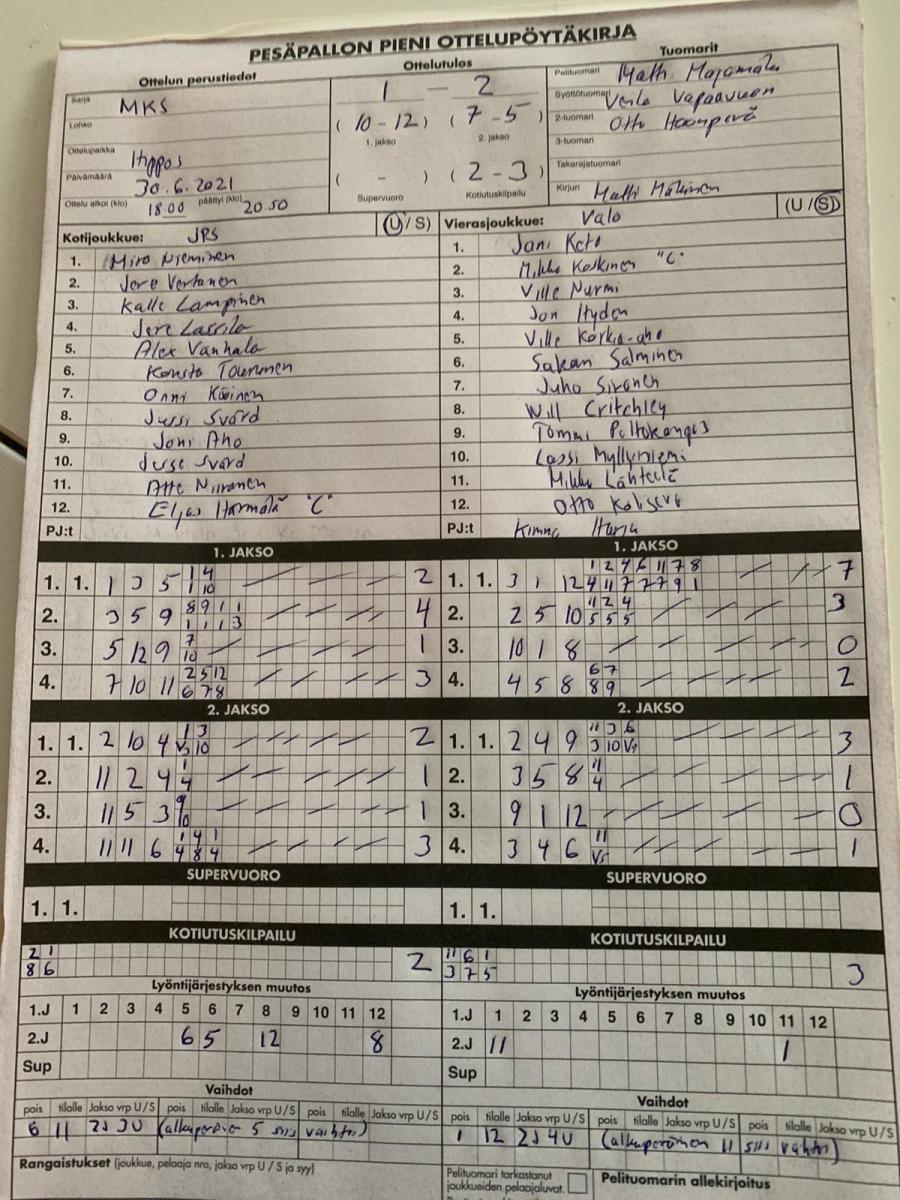 PESÄPALLON PIENI OTTELUPÖYTÄKIRJA
Ottelun perustiedot
Sarja MKS
Lohko
Ottelupaikka Hippos
Päivämäärä 30.6.2021
Ottelu alkoi (klo) 18.00 päättyi (klo) 20.50
Ottelutulos
1 - 2
(10-12) (7-5)
1. jakso 2. jakso
( - ) (2-3)
Supervuoro Kotiutuskilpailu
Tuomarit
Pelituomari Matti Majamäki
Syöttötuomari Verla Vapaavuori
2-tuomari Otto Haanperä
3-tuomari
Takarajatuomari
Kirjuri Matti Mäkinen
Kotijoukkue: JPS (U/S)
1. Miro Nieminen
2. Jere Vertanen
3. Kalle Lampinen
4. Jere Lassila
5. Alex Vanhala
6. Konsta Tourunen
7. Onni Köninen
8. Jussi Svärd
9. Joni Aho
10. Juse Svärd
11. Atte Niiranen
12. Eljas Harmälä "C"
PJ:t
Vierasjoukkue: Valo (U/S)
1. Jani Keto
2. Mikko Keskinen "C"
3. Ville Nurmi
4. Jon Hyden
5. Ville Korkia-aho
6. Sakari Salminen
7. Juho Sironen
8. Will Critchley
9. Tommi Peltokangas
10. Lassi Myllyniemi
11. Mikko Lähteelä
12. Otto
PJ:t Kimmo Harju
1. JAKSO
1. 1. 1 3 5 1 4 2
1 10
2. 3 5 9 8 9 1 1 4
1 1 1 3
3. 5 12 9 7 1
10
4. 7 10 11 2 5 12 3
6 7 8
2. JAKSO
1. 1. 2 10 4 1 3 2
V3 10
2. 11 2 4 1 1
4
3. 11 5 3 9 1
10
4. 11 11 6 1 4 1 3
4 8 4
SUPERVUORO
1. 1.
KOTIUTUSKILPAILU
2 1 2
8 6
1. JAKSO
1. 1. 3 1 12 1 2 4 6 11 7 8 7
4 11 7 7 7 9 1
2. 2 5 10 11 2 4 3
5 5 5
3. 10 1 8 0
4. 4 5 8 6 7 2
8 9
2. JAKSO
1. 1. 2 4 9 11 3 6 3
3 10 V1
2. 3 5 8 11 1
4
3. 9 1 12 0
4. 3 4 6 11 1
SUPERVUORO
1. 1.
KOTIUTUSKILPAILU
11 6 1 3
3 7 5
Lyöntijärjestyksen muutos
1.J 1 2 3 4 5 6 7 8 9 10 11 12
2.J 6 5 12 8
Sup
Vaihdot
pois tilalle Jakso vrp U/S pois tilalle Jakso vrp U/S pois tilalle Jakso vrp U/S
6 11 2J 3U (alkuperäin 5 siis vaihtoi)
Lyöntijärjestyksen muutos
1.J 1 2 3 4 5 6 7 8 9 10 11 12
2.J 11 1
Sup
Vaihdot
pois tilalle Jakso vrp U/S pois tilalle Jakso vrp U/S pois tilalle Jakso vrp U/S
1 12 2J 4U (alkuperäinen 11 siis vaihtoi)
Rangaistukset (joukkue, pelaaja nro, jakso vrp U/S ja syy)
Pelituomari tarkastanut
joukkueiden pelaajaluvat.
Pelituomarin allekirjoitus